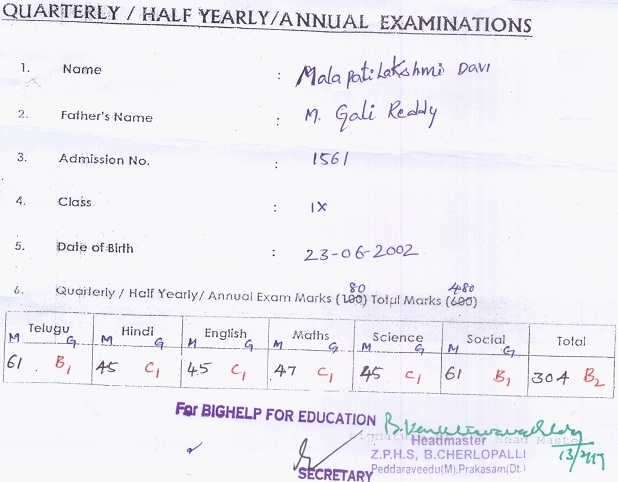 QUARTERLY / HALF YEARLY/ANNUAL EXAMINATIONS
1. Name : Malapati Lakshmi Davi
2. Father's Name : M. Gali Reddy
3. Admission No. : 1561
4. Class : IX
5. Date of Birth : 23-06-2002
80 480
6. Quarterly / Half Yearly/ Annual Exam Marks (100) Total Marks (600)
Telugu Hindi English Maths Science Social Total
M G M G M G M G M G M G
61 B1 45 C1 45 C1 47 C1 45 C1 61 B1 304 B2
For BIGHELP FOR EDUCATION
Headmaster
Z.P.H.S, B.CHERLOPALLI
Peddaraveedu(M),Prakasam(Dt.
SECRETARY